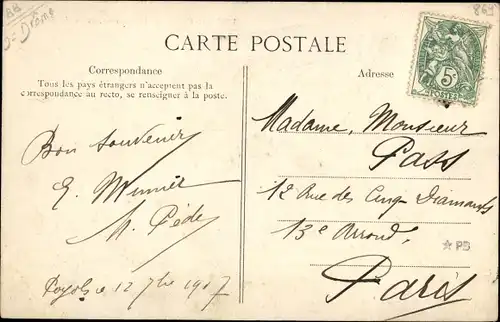 88
D-Drôme
CARTE POSTALE
Correspondance
Tous les pays étrangers n'acceptent pas la
correspondance au recto, se renseigner à la poste.
Adresse
5c
POSTES
Bon souvenir
E. Munier
12 7bre 1907
Madame, Monsieur
Pass
12 Rue des Cinq Diamants
13e Arrond,
Paris
PB